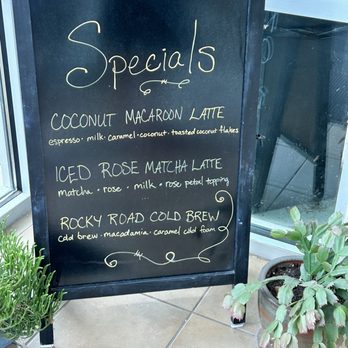 Specials
COCONUT MACAROON LATTE
espresso · milk · caramel · coconut · toasted coconut flakes
ICED ROSE MATCHA LATTE
matcha · rose · milk · rose petal topping
ROCKY ROAD COLD BREW
cold brew · macadamia · caramel cold foam